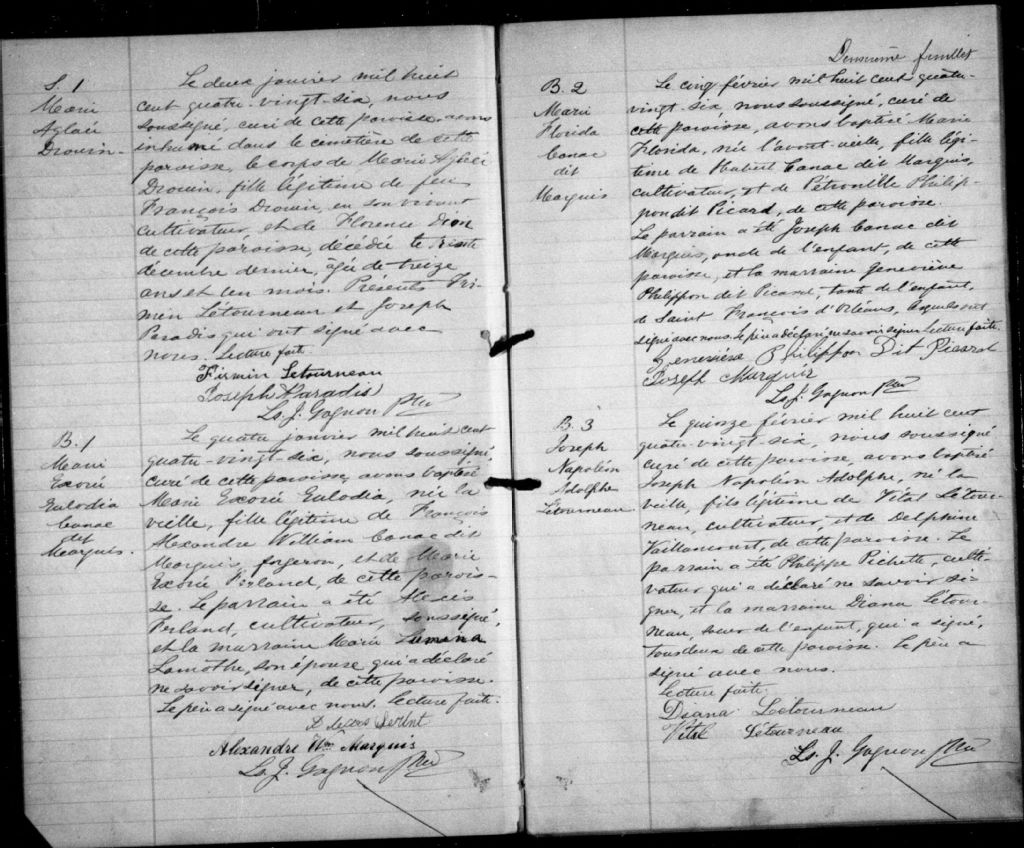 S. 1
Marie
Aglaée
Drouin.
Le deux janvier mil huit
cent quatre-vingt-six, nous
soussigné, curé de cette paroisse avons
inhumé dans le cimetière de cette
paroisse, le corps de Marie Aglaée
Drouin, fille légitime de feu
François Drouin, en son vivant
cultivateur, et de Florence Dion
de cette paroisse, décédée le trente
décembre dernier, âgée de treize
ans et un mois. Présents Fir-
min Létourneau et Joseph
Paradis qui ont signé avec
nous. Lecture faite.
Firmin Letourneau
Joseph Paradis
Ls. J. Gagnon Ptre
B. 1
Marie
Exorée
Eulodia
Canac
dit
Marquis.
Le quatre janvier mil huit cent
quatre-vingt-six, nous soussigné,
curé de cette paroisse, avons baptisé
Marie Exorée Eulodia, née la
veille, fille légitime de François
Alexandre William Canac dit
Marquis, forgeron, et de Marie
Exorée Ferland, de cette parois-
se. Le parrain a été Alexis
Ferland, cultivateur, soussigné,
et la marraine Marie
Lamothe, son épouse qui a déclaré
ne savoir signer, de cette paroisse.
Le père a signé avec nous. Lecture faite.
Alexandre Wm Marquis
Ls. J. Gagnon Ptre
Deuxième feuillet
B. 2
Marie
Florida
Canac
dit
Marquis
Le cinq février mil huit cent quatre-
vingt-six, nous soussigné, curé de
cette paroisse, avons baptisé Marie
Florida, née l'avant-veille, fille légi-
time de Hubert Canac dit Marquis,
cultivateur, et de Pétronille Philip-
pon dit Picard, de cette paroisse.
Le parrain a été Joseph Canac dit
Marquis, oncle de l'enfant, de cette
paroisse, et la marraine Geneviève
Philippon dit Picard, tante de l'enfant,
de Saint François d'Orléans, lesquels ont
signé avec nous. Le père a déclaré ne savoir signer. Lecture faite.
Geneviève Philippon Dit Picard
Joseph Marquis
Ls. J. Gagnon Ptre
B. 3
Joseph
Napoléon
Adolphe
Létourneau.
Le quinze février mil huit cent
quatre-vingt-six, nous soussigné
curé de cette paroisse, avons baptisé
Joseph Napoléon Adolphe, né la
veille, fils légitime de Vital Létour-
neau, cultivateur, et de Delphine
Vaillancourt, de cette paroisse. Le
parrain a été Philippe Pichette, culti-
vateur qui a déclaré ne savoir si-
gner, et la marraine Diana Létour-
neau, sœur de l'enfant, qui a signé,
tous deux de cette paroisse. Le père a
signé avec nous.
Lecture faite.
Diana Letourneau
Vital Létourneau
Ls. J. Gagnon Ptre